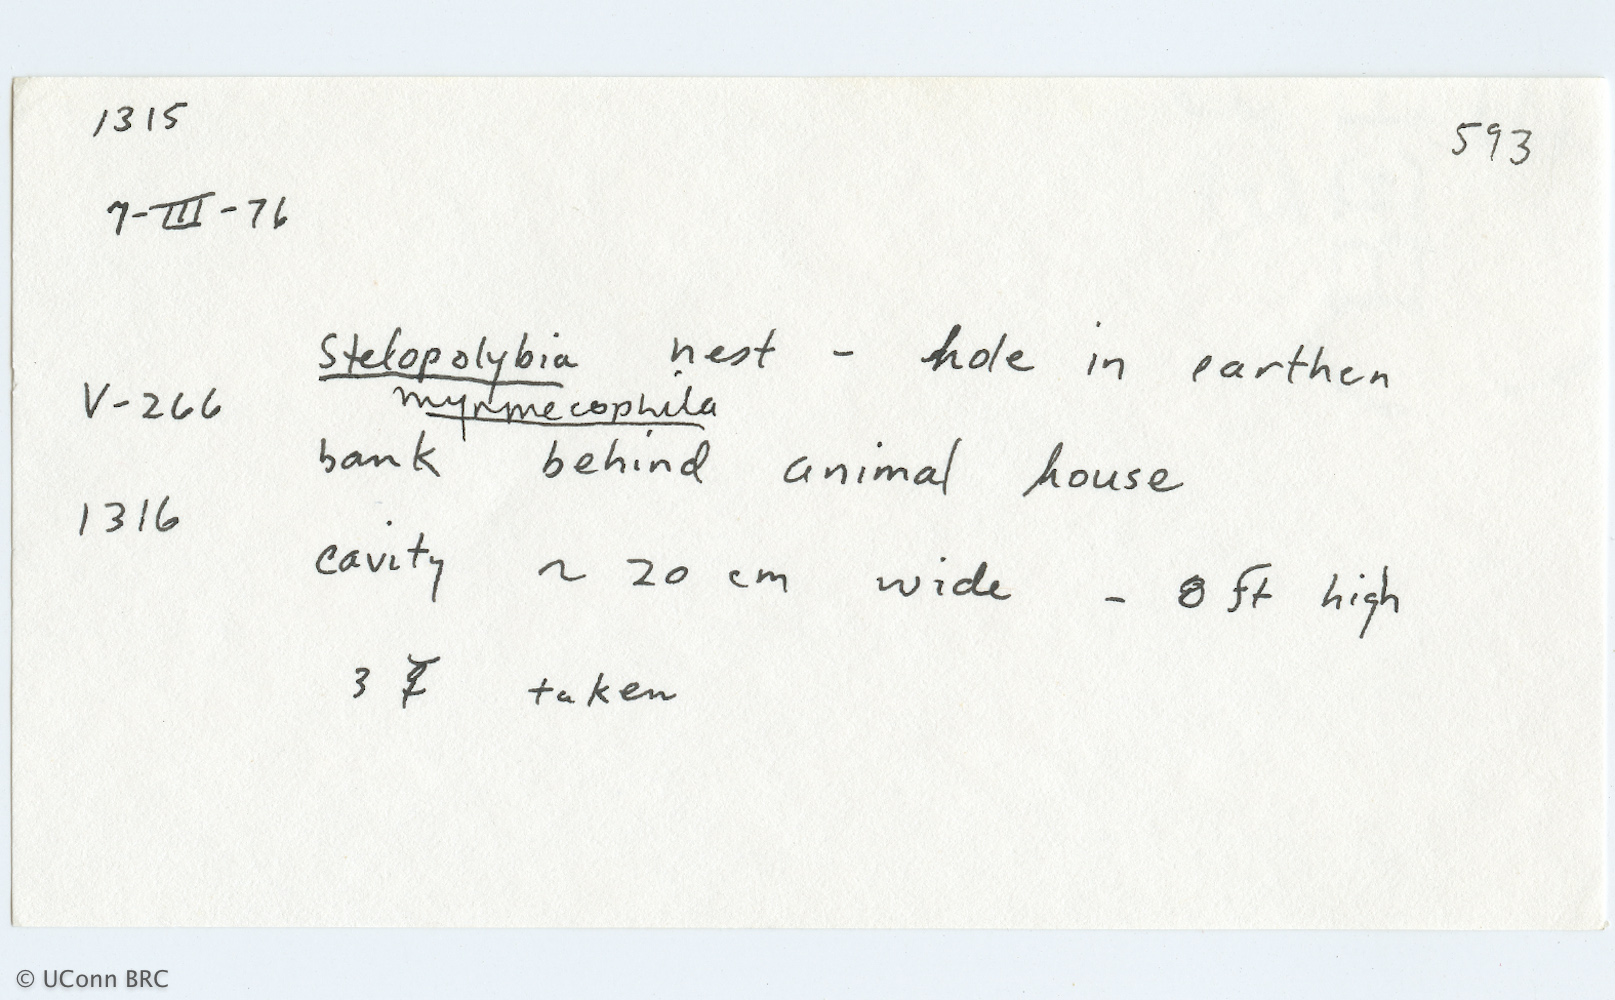 1315
593
7-III-76
Stelopolybia nest - hole in earthen
V-266
myrmecophila
bank behind animal house
1316
cavity ~ 20 cm wide - 8 ft high
3 ☿ taken
© UConn BRC